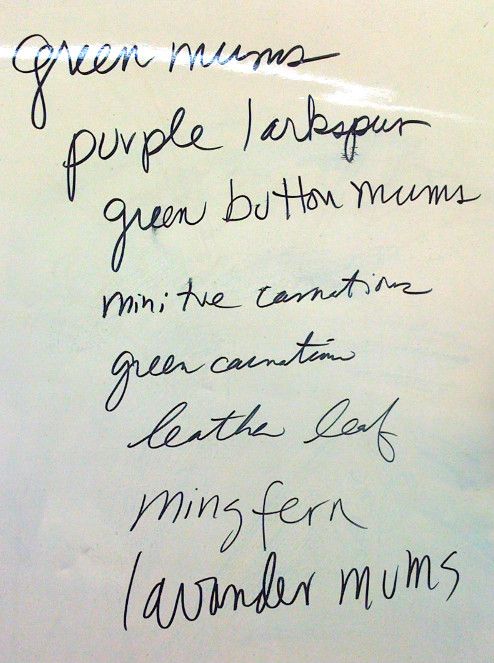 green mums
purple larkspur
green button mums
mini tve carnations
green carnation
leather leaf
ming fern
lavander mums